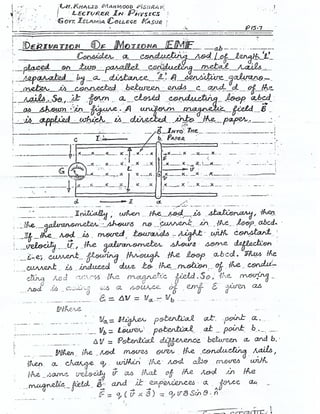 Lr. KHALID MAHMOOD
LECTURER IN PHYSICS
GOVT ISLAMIA COLLEGE KASUR
P15-7
DERIVATION OF MOTIONAL EMF
ab
Consider a conducting rod of length 'L'
placed on two parallel conducting metal rails
separated by a distance 'L'. A sensitive galvano-
meter is connected between ends c and d of the
rails. So, it form a closed conducting loop abcd
as shown in figure. A uniform magnetic field B
is applied which is directed into the paper.
B INTO THE
PAPER
c I b
G L
d a
Initially, when the rod is stationary, then
the galvanometer shows no current in the loop abcd.
If the rod is moved towards right with constant
velocity v, the galvanometer shows some deflection
i.e; current flowing through the loop abcd. Thus the
current is induced due to the motion of the condu-
cting rod across the magnetic field. So, the moving
rod is acting as a source of emf ε given as
ε = ΔV = Va - Vb
Where
Va = Higher potential at point a.
Vb = Lower potential at point b.
ΔV = Potential difference between a and b.
When the rod moves over the conducting rails,
then a charge q within the rod also moves with
the same velocity v as that of the rod in the
magnetic field B and it experiences a force as
F = q(v × B) = qvB Sinθ n